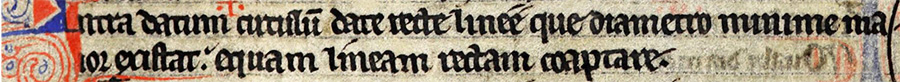 Intra datum circulum date recte linee que diametro minime ma
ior existat. equam lineam rectam coaptare.